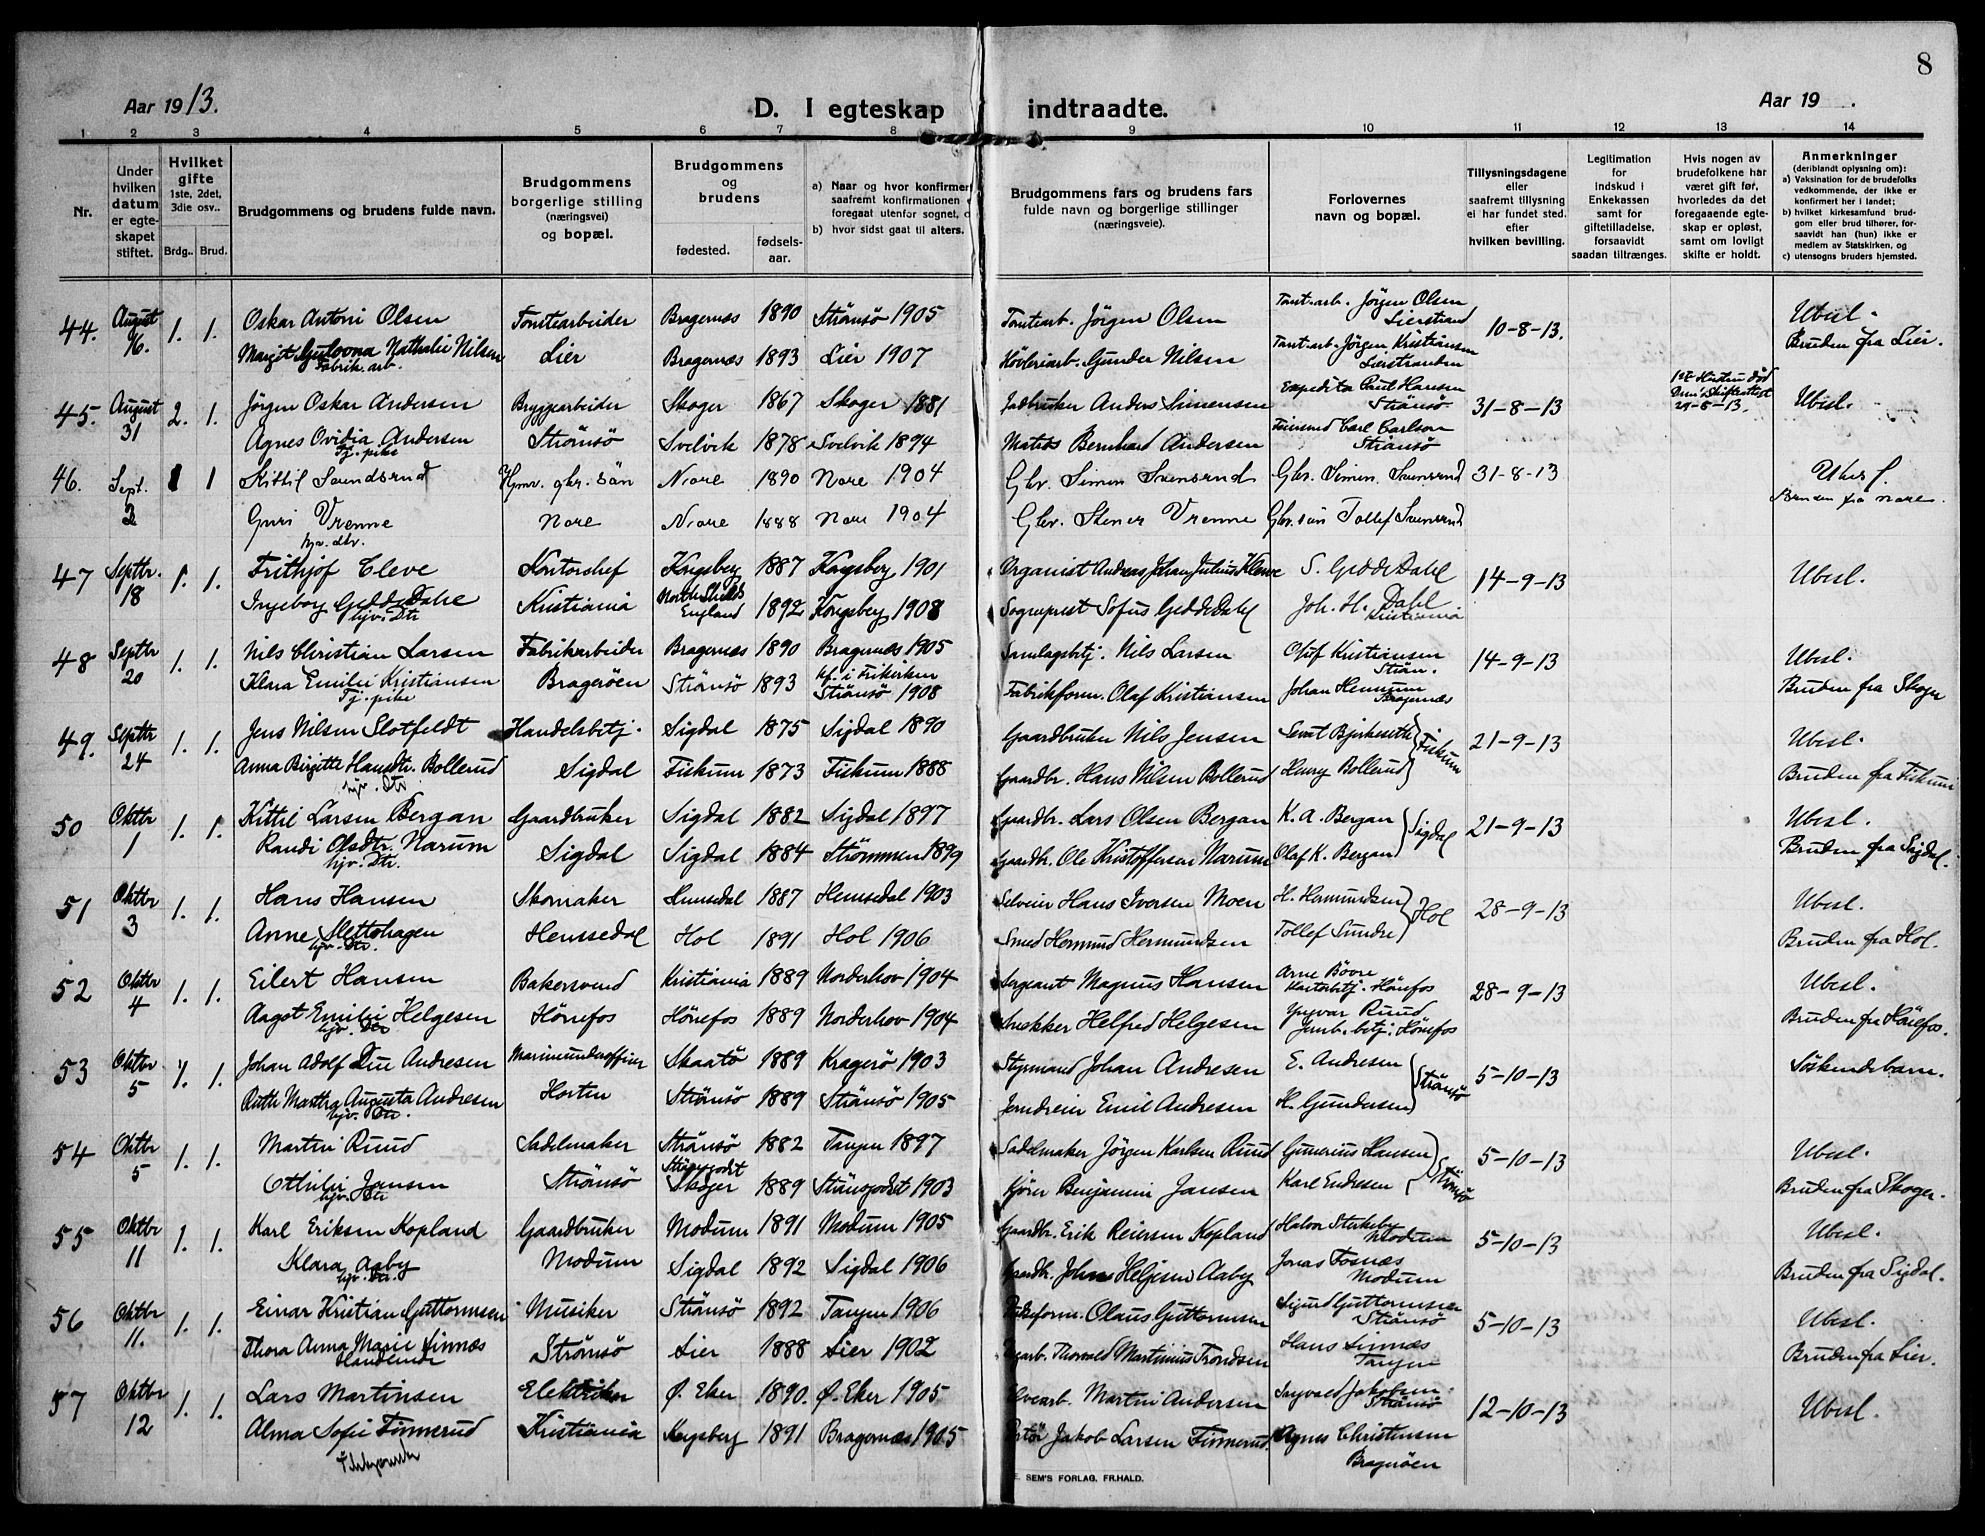 8
Aar 1913.
D. I egteskap indtraadte.
Aar 19 .
1 2 3 4 5 6 7 8 9 10 11 12 13 14
Nr.
Under hvilken datum er egteskapet stiftet.
Hvilket gifte 1ste, 2det, 3die osv..
Brdg.. Brud.
Brudgommens og brudens fulde navn.
Brudgommens borgerlige stilling (næringsvei) og bopæl.
Brudgommens og brudens
fødested. fødsels-aar.
a) Naar og hvor konfirmert
saafremt konfirmationen
foregaat utenfor sognet,
b) hvor sidst gaat til alters.
Brudgommens fars og brudens fars
fulde navn og borgerlige stillinger
(næringsveie).
Forlovernes
navn og bopæl.
Tillysningsdagene
eller
saafremt tillysning
ei har fundet sted.
efter
hvilken bevilling.
Legitimation
for
indskud i
Enkekassen
samt for
giftetilladelse,
forsaavidt
saadan tiltrænges.
Hvis nogen av
brudefolkene har
været gift før,
hvorledes da det
foregaaende egte-
skap er opløst,
samt om lovligt
skifte er holdt.
Anmerkninger
(deriblandt oplysning om):
a) Vaksination for de brudefolks
vedkommende, der ikke er
konfirmert her i landet;
b) hvilket kirkesamfund brud-
gom eller brud tilhører, for-
saavidt han (hun) ikke er
medlem av Statskirken, og
c) utensogns bruders hjemsted.
44. August 16. 1. 1. Oskar Antoni Olsen Tomtearbeider Bragernæs 1890 Strömsö 1905 Tomtearb. Jörgen Olsen Tomt.arb. Jörgen Olsen Lierstrand 10-8-13. Ubesl.
Margit Nathalie Nilsen Fabrik.arb. Lier Bragernæs 1893 Lier 1907 Gunder Nilsen Tomt.arb. Jörgen Kristiansen Lierstranden Bruden fra Lier.
45. August 31 2. 1. Jörgen Oskar Andersen Bryggearbeider Skoger 1867 Skoger 1881 Jndbruker Anders Simensen Paul Hansen Strömsö 31-8-13 29-8-13. Ubesl.
Agnes Ovidia Andersen Tj. pike Strömsö Svelvik 1878 Svelvik 1894 Matros Bernhard Andersen Carl Carlson Strömsö
46. Sept. 2 1 1 Kittil Svendsrud Nore 1890 Nore 1904 Gbr. Simen Gbr. Simen 31-8-13
Guri Vrenne Nore Nore 1888 Nore 1904 Gbr. Stener Vrenne Gbr. sön Tollef Bruden fra Nore.
47 Septbr. 18 1. 1. Frithjof Cleve Kontorchef Kongsberg 1887 Kongsberg 1901 Organist Andreas Johan Julius Kleve S. Gedde Dahl 14-9-13 Ubesl.
Ingeborg Gedde Dahl hjv. Dtr Kristiania North Shields England 1892 Kongsberg 1908 Sogneprest Sofus Gedde Dahl Joh. H. Dahl Kristiania
48 Septbr 20 1. 1. Nils Christian Larsen Fabrikarbeider Bragernæs 1890 Bragernæs 1905 kf. i Frikirken Samlagsbtj. Nils Larsen Oluf Kristiansen Ström. 14-9-13 Ubesl.
Klara Emilie Kristiansen Tj. pike Bragerøen Strömsö 1893 Strömsö 1908 Fabrikform. Olaf Kristiansen Johan Bragernæs Bruden fra Skoger
49. Septbr 24 1. 1. Jens Nilsen Slotfeldt Handelsbetj. Sigdal 1875 Sigdal 1890 Gaardbruker Nils Jensen 21-9-13 Ubesl.
Anna Birgitte Hansdtr. Bollerud hjv. Dtr Sigdal Fiskum 1873 Fiskum 1888 Gaardbr. Hans Nilsen Bollerud Henry Bollerud Fiskum Bruden fra Fiskum
50 Oktbr 1 1. 1. Kittil Larsen Bergan Gaardbruker Sigdal 1882 Sigdal 1897 Gaardbr. Lars Olsen Bergan K. A. Bergan 21-9-13 Ubesl.
Randi Olsdtr. Narum hjv. Dtr. Sigdal Sigdal 1884 Strømmen 1899 Gaardbr. Ole Kristoffersen Narum Olaf K. Bergan Sigdal Bruden fra Sigdal.
51 Oktbr 3 1. 1. Hans Hansen Skomaker Hemsedal 1887 Hemsedal 1903 Selveier Hans Iversen Moen H. Hermundsen 28-9-13 Ubesl.
Anne Slettehagen hjv. Dtr. Hemsedal Hol 1891 Hol 1906 Smed Hermund Hermundsen Tollef Sundre Hol Bruden fra Hol.
52 Oktbr 4 1. 1. Eilert Hansen Bakersvend Kristiania 1889 Norderhov 1904 Sergeant Magnus Hansen Arne Bövre Kontorbtj. Hönefos 28-9-13 Ubesl.
Aagot Emilie Helgesen hjv. Dtr Hönefos Hönefos 1889 Norderhov 1904 Snekker Helfred Helgesen Yngvar Ruud Jernb. btj. Hönefos Bruden fra Hönefos.
53 Oktbr 5 1. 1. Johan Adolf Due Andresen Marineunderofficer Skaatö 1889 Kragerö 1903 Styrmand Johan Andresen E. Andresen 5-10-13 Söskendebarn.
Ruth Martha Augusta Andresen hjv. Dtr Horten Strömsö 1889 Strömsö 1905 Jerndreier Emil Andresen H. Gundersen Strömsö
54 Oktbr 5 1. 1. Martin Ruud Sadelmaker Strömsö 1882 Tangen 1897 Sadelmaker Jörgen Karlsen Ruud Gunerius Hansen 5-10-13 Ubesl.
Othilie Jansen hjv. Dtr Strömsö Strömsgodset Skoger 1889 Strömsgodset 1903 Kjörer Benjamin Jansen Karl Endresen Strömsö Bruden fra Skoger.
55 Oktbr 11 1. 1. Karl Eriksen Kopland Gaardbruker Modum 1891 Modum 1905 Gaardbr. Erik Reiersen Kopland Halvor Sterkeby Modum 5-10-13 Ubesl.
Klara Aaby hjv. Dtr. Modum Sigdal 1892 Sigdal 1906 Gaardbr. Johns Helgesen Aaby Jonas Fosnæs Modum Bruden fra Sigdal.
56 Oktbr 11. 1. 1. Einar Kristian Guttormsen Musiker Strömsö 1892 Tangen 1906 Olaus Guttormsen Sigurd Guttormsen Strömsö 5-10-13 Ubesl.
Thora Anna Marie Linnæs Handlende Strömsö Lier 1888 Lier 1902 Thorvald Martinius Trondsen Hans Linnæs Tangen Bruden fra Lier.
57 Oktbr 12 1. 1. Lars Martinsen Elektriker Ø. Eker 1890. Ø. Eker 1905 Elvearb. Martin Andersen Ingvald Jakobsen Strömsö 12-10-13 Ubesl.
Alma Sofie Finnerud Kristiania Kongsberg 1891 Bragernæs 1905 Jakob Larsen Finnerud Agnes Christensen Bragerøen
SEM'S FORLAG. FR.HALD.